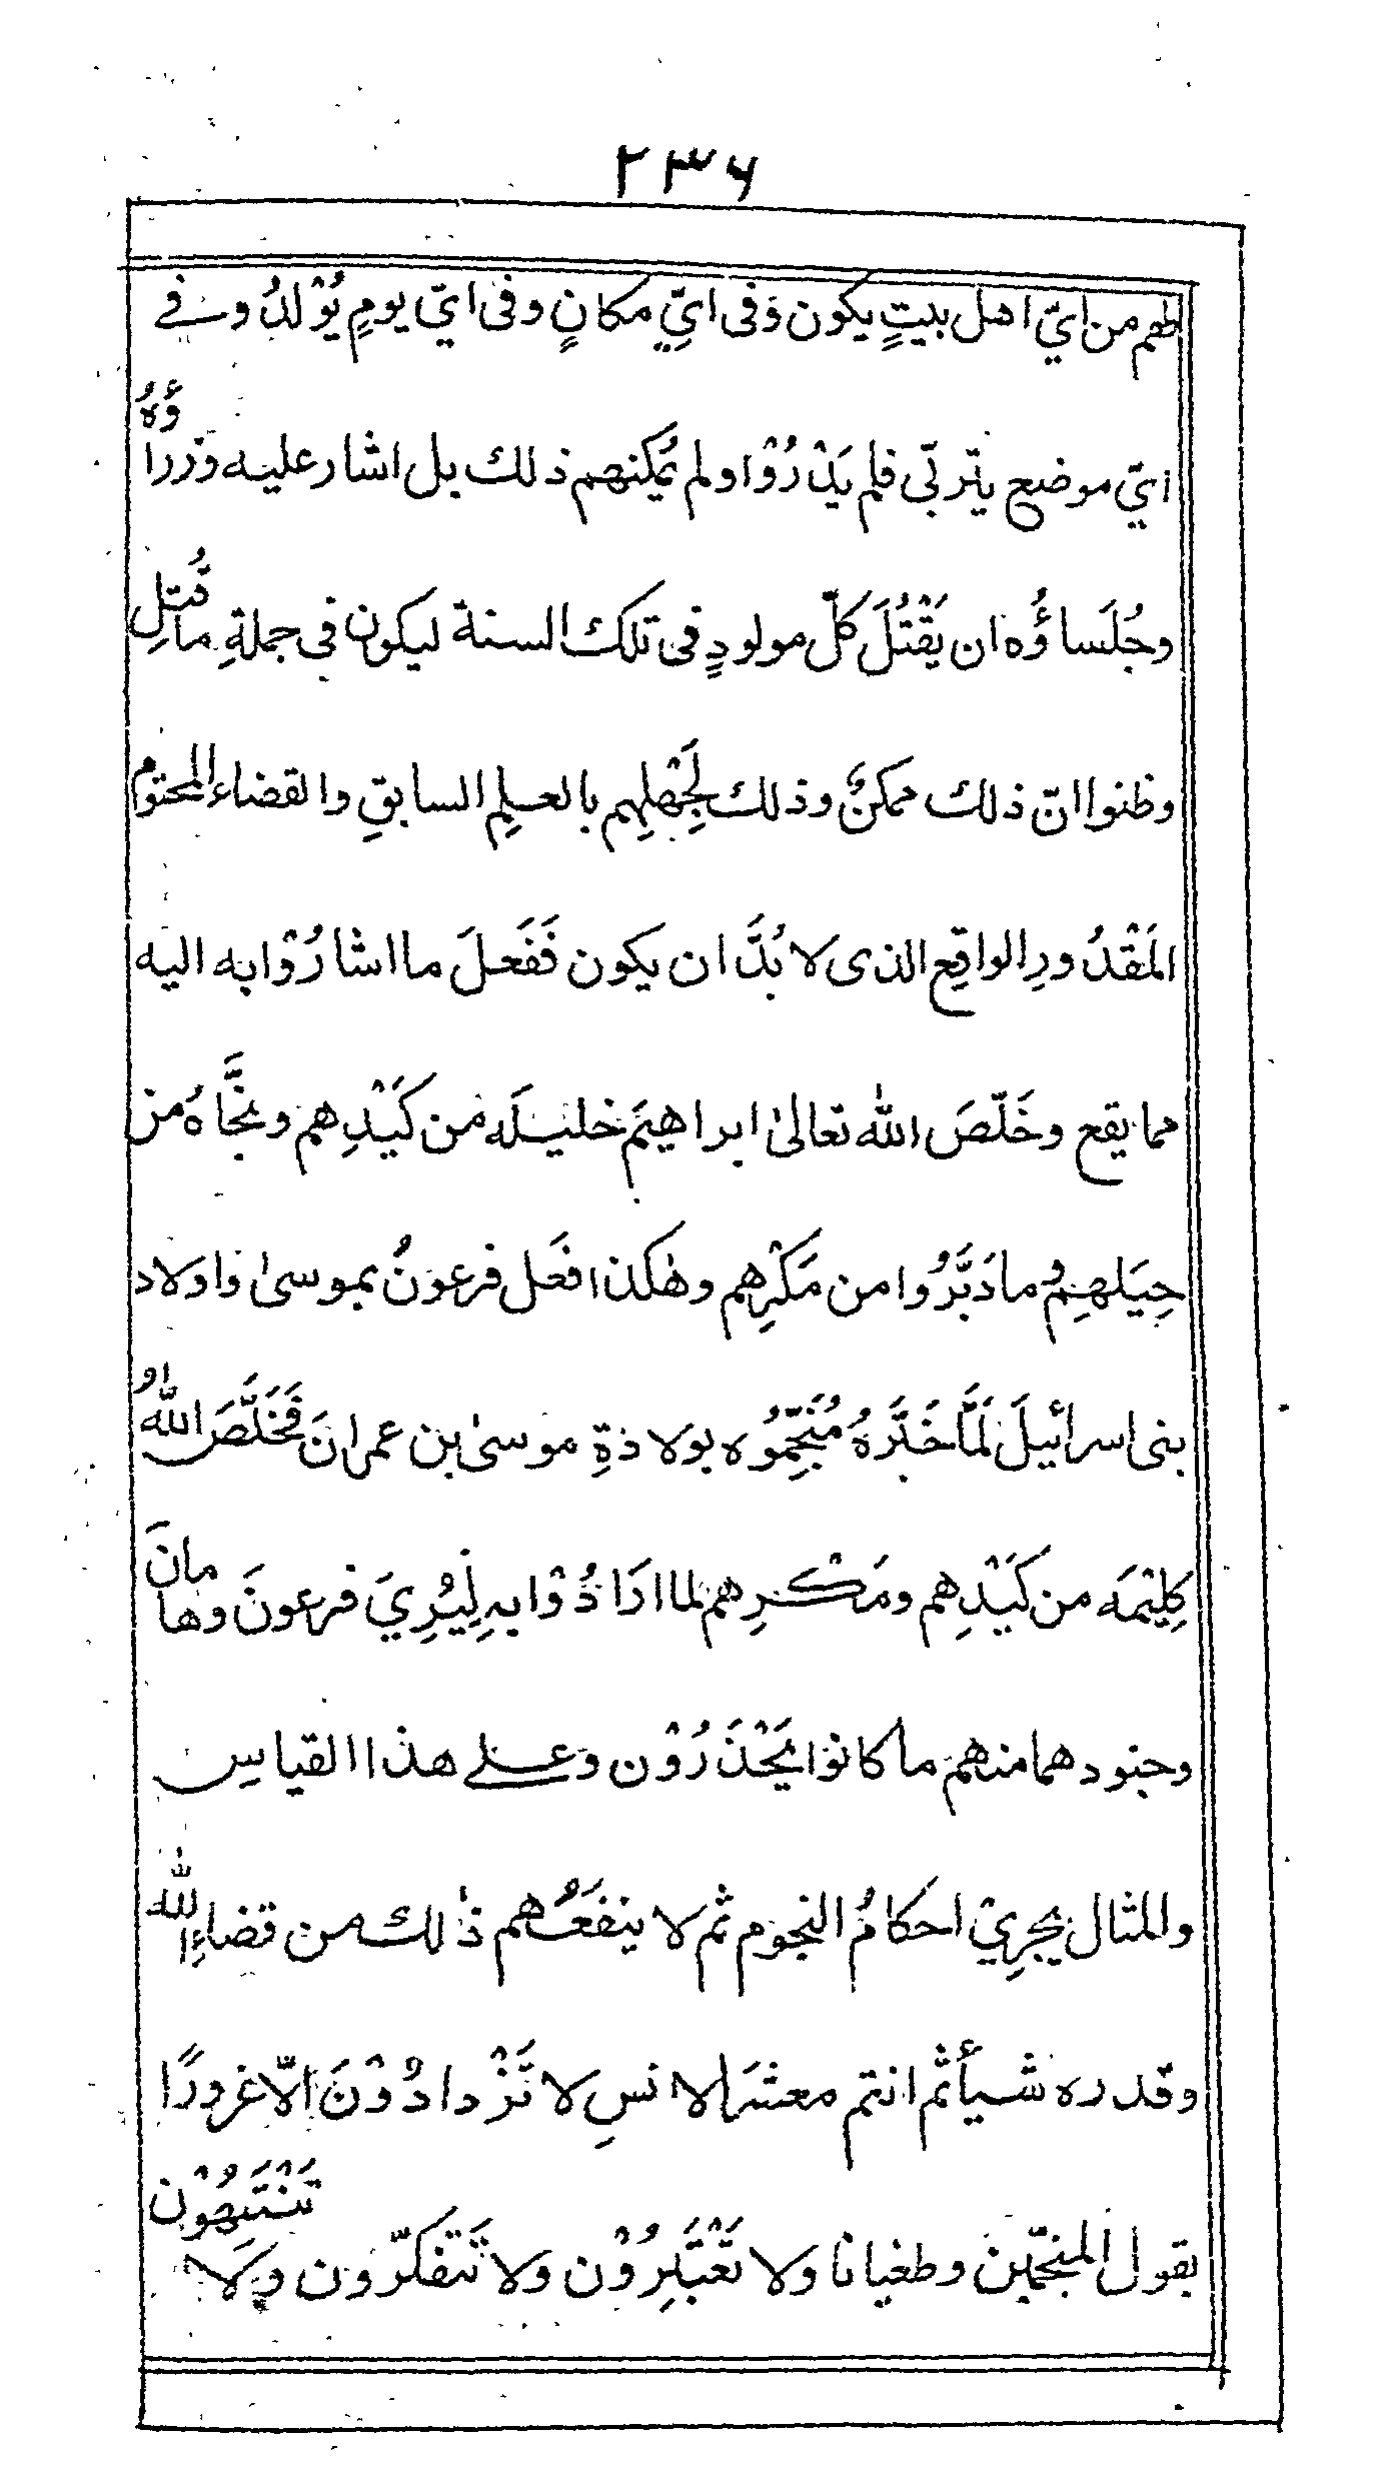 ٢٣٦
طهم من ايّ اهل بيتٍ يكون وفى ايِّ مكانٍ وفى ايّ يومٍ يُوْلدُ وفى
ايّ موضع يتربّى فلم يَدْرُوْا ولم يُمكنهم ذلك بل اشار عليه وزراؤُهُ
وجُلَساؤُه ان يَقْتُلَ كلّ مولودٍ فى تلك السنة ليكون فى جملةِ ما قُتِلِ
وظنوا انّ ذلك ممكنٌ وذلك لِجَهْلِهم بالعلمِ السابقِ والقضاء المحتوم
المَقْدُورِ الواقِع الذى لا بُدَّ ان يكون فَفَعلَ ما اشارُوْا به اليه
مما يقع وخَلّصَ الله تعالىٰ ابراهيمَ خليلَه من كَيْدِهم ونجَّاهُ من
حِيَلهِمْ وما دَبَّرُوا من مَكْرِهم وهٰكذا فَعل فرعونُ بموسىٰ واولاد
بنى اسرائيلَ لَمَّا خَبَّرَهُ مُنَجِّمُوه بولادةِ موسىٰ بن عمرانَ فَخَلَّصَ اللهُ
كِلِيْمَه من كَيْدِهم ومَكْرِهم لما ارَادُوْا بهِ لِيُرِيَ فرعونَ وهامانَ
وجنودهما منهم ما كانوا يَحْذَرُوْن وعلى هذا القياسِ
والمثال يجرِيْ احكامُ النجوم ثم لا ينفَعُهم ذٰلك من قضاءِ اللّٰه
وقدره شيأً ثم انتم معشرَ الانسِ لا تَزْدادُوْنَ الاّ غرورًا
بقول المنجّمين وطغيانا ولا تَعْتَبِرُوْن ولا تَتَفكّرُون ولا تَنْتَبِهُوْن